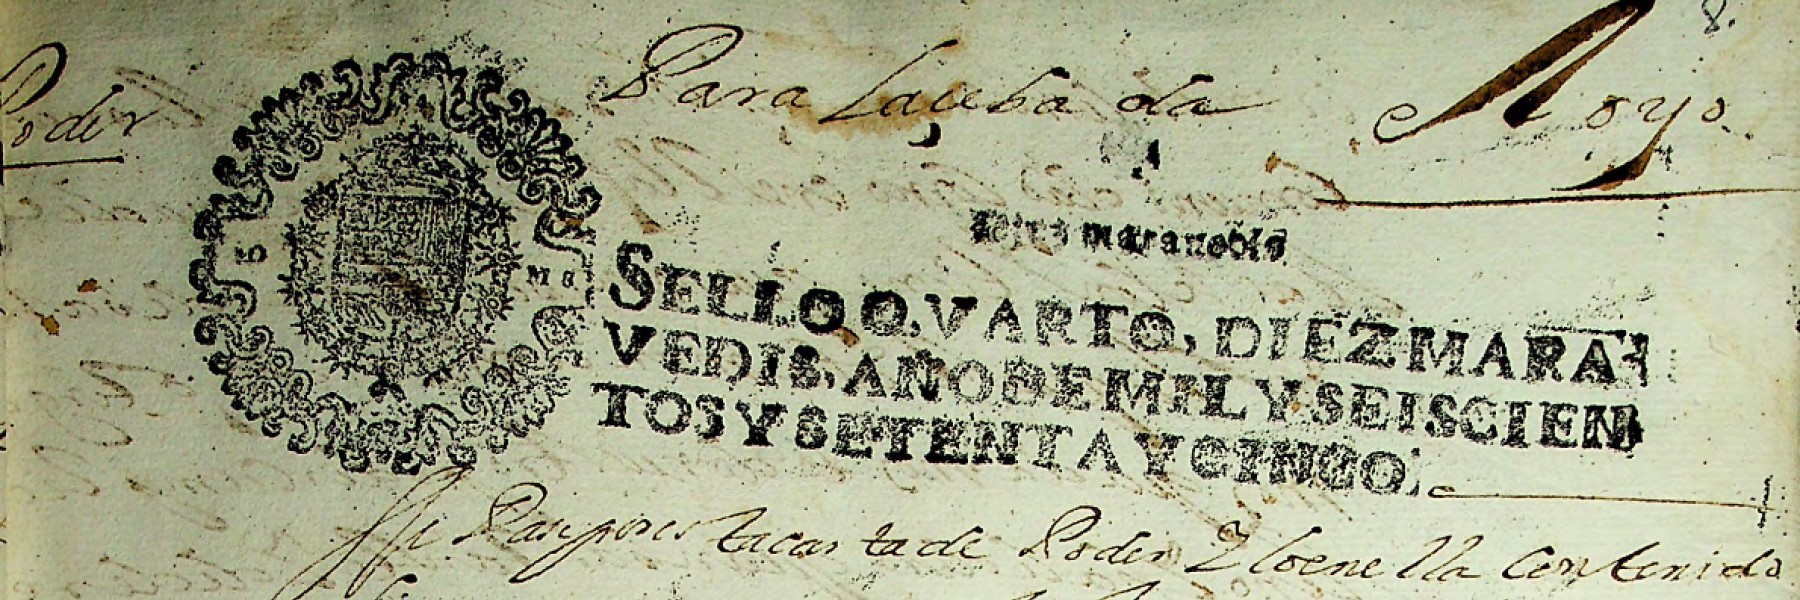 8.
Poder
Para la çeba da
Royo
Diez maravedis
SELLO QVARTO, DIEZ MARA-
VEDIS, AÑO DE MIL Y SEISCIEN
TOS Y SETENTA Y CINCO.
Sepan por esta carta de Poder Y lo en ella contenido